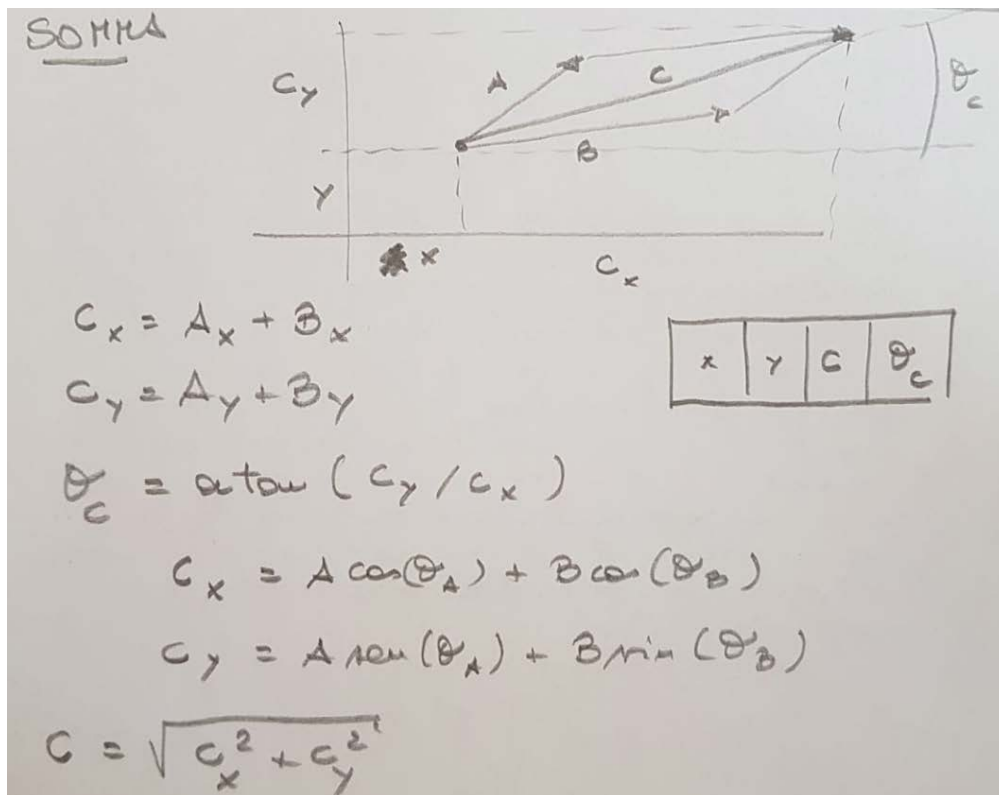 SOMMA
A
C
Cy
θc
B
y
x
Cx
Cx = Ax + Bx
x y C θc
Cy = Ay + By
θc = atan (Cy / Cx)
Cx = A cos(θA) + B cos(θB)
Cy = A sen(θA) + B sin(θB)
C = √Cx² + Cy²